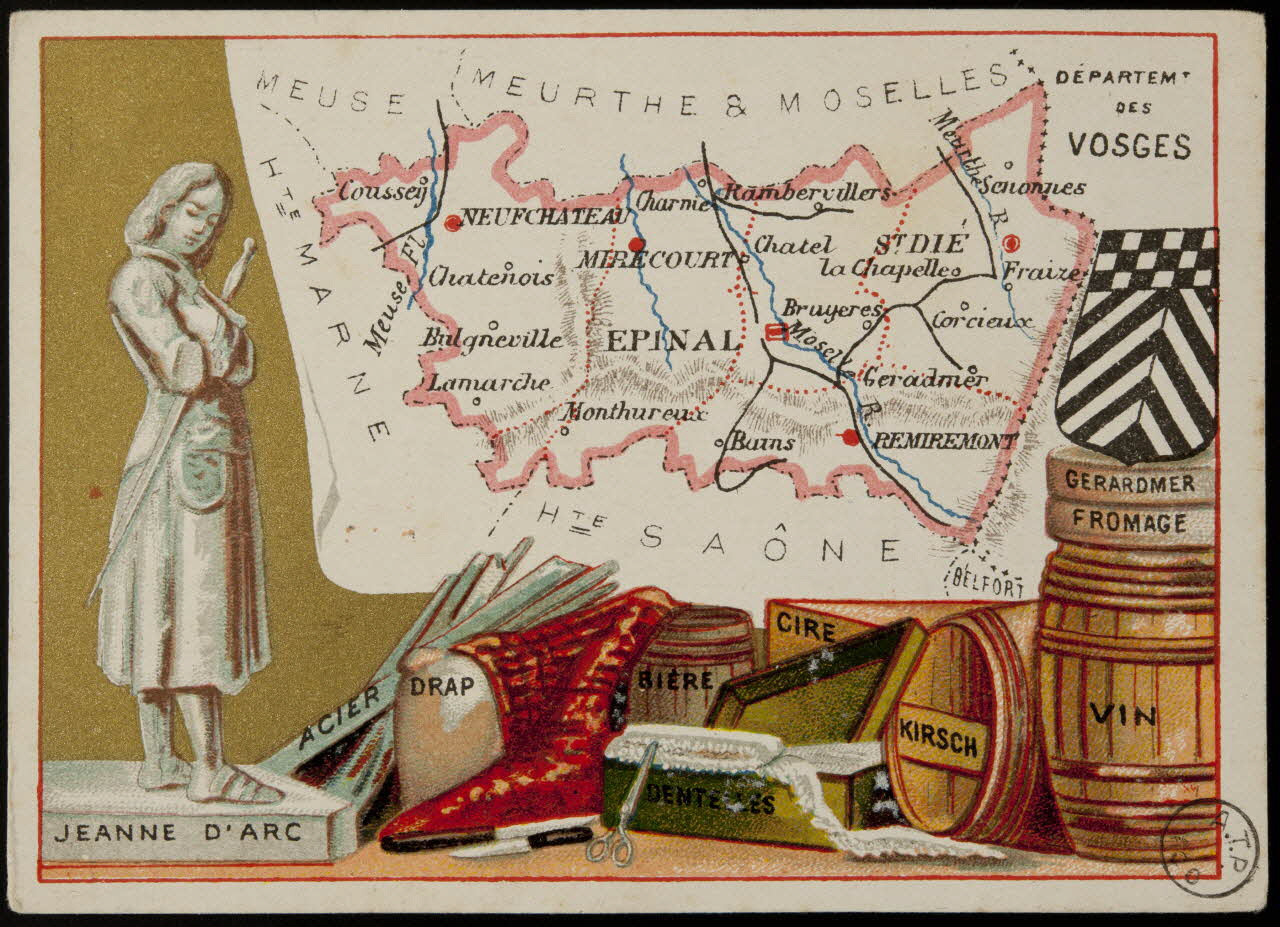 MEUSE
MEURTHE & MOSELLES
DÉPARTEMT
DES
VOSGES
HTE MARNE
Meurthe R
Coussey
Charmes
Rambervillers
Senonnes
NEUFCHATEAU
MIRECOURT
Chatel
ST DIÉ
la Chapelle
Fraize
Meuse Fl
Chatenois
Bruyeres
Corcieux
Bulgneville
EPINAL
Moselle R
Lamarche
Geradmer
Monthureux
Bains
REMIREMONT
HTE SAÔNE
BELFORT
GERARDMER
FROMAGE
CIRE
BIÈRE
DRAP
ACIER
KIRSCH
VIN
DENTELLES
JEANNE D'ARC
A.T.P